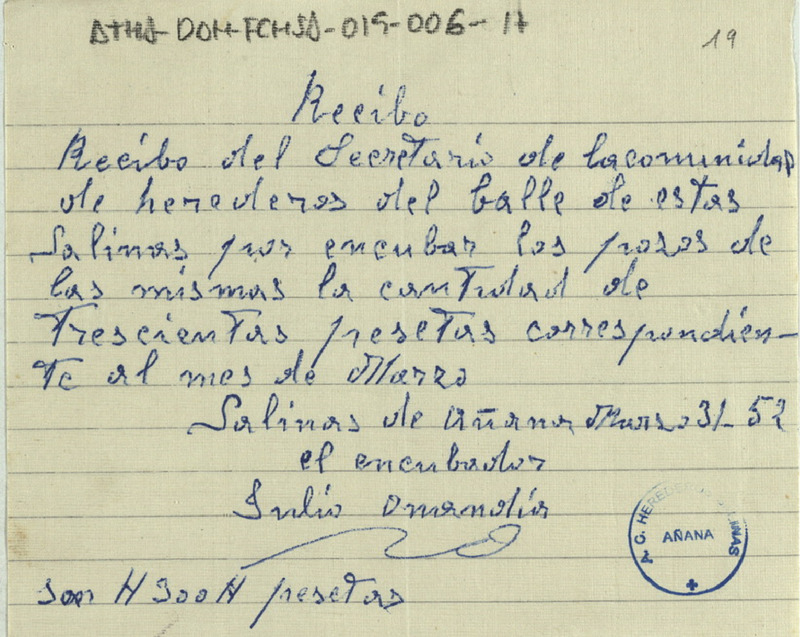 ATHA-DOH-FCHSA-019-006-17
19
Recibo
Recibo del Secretario de lacomunidad
de herederos del balle de estas
Salinas por encubar los pozos de
las mismas la cantidad de
Trescientas pesetas correspondien-
te al mes de Marzo
Salinas de Añana Marzo 31-52
el encubador
Julio Omandia
C. HEREDE
AÑANA
son H 300 H pesetas